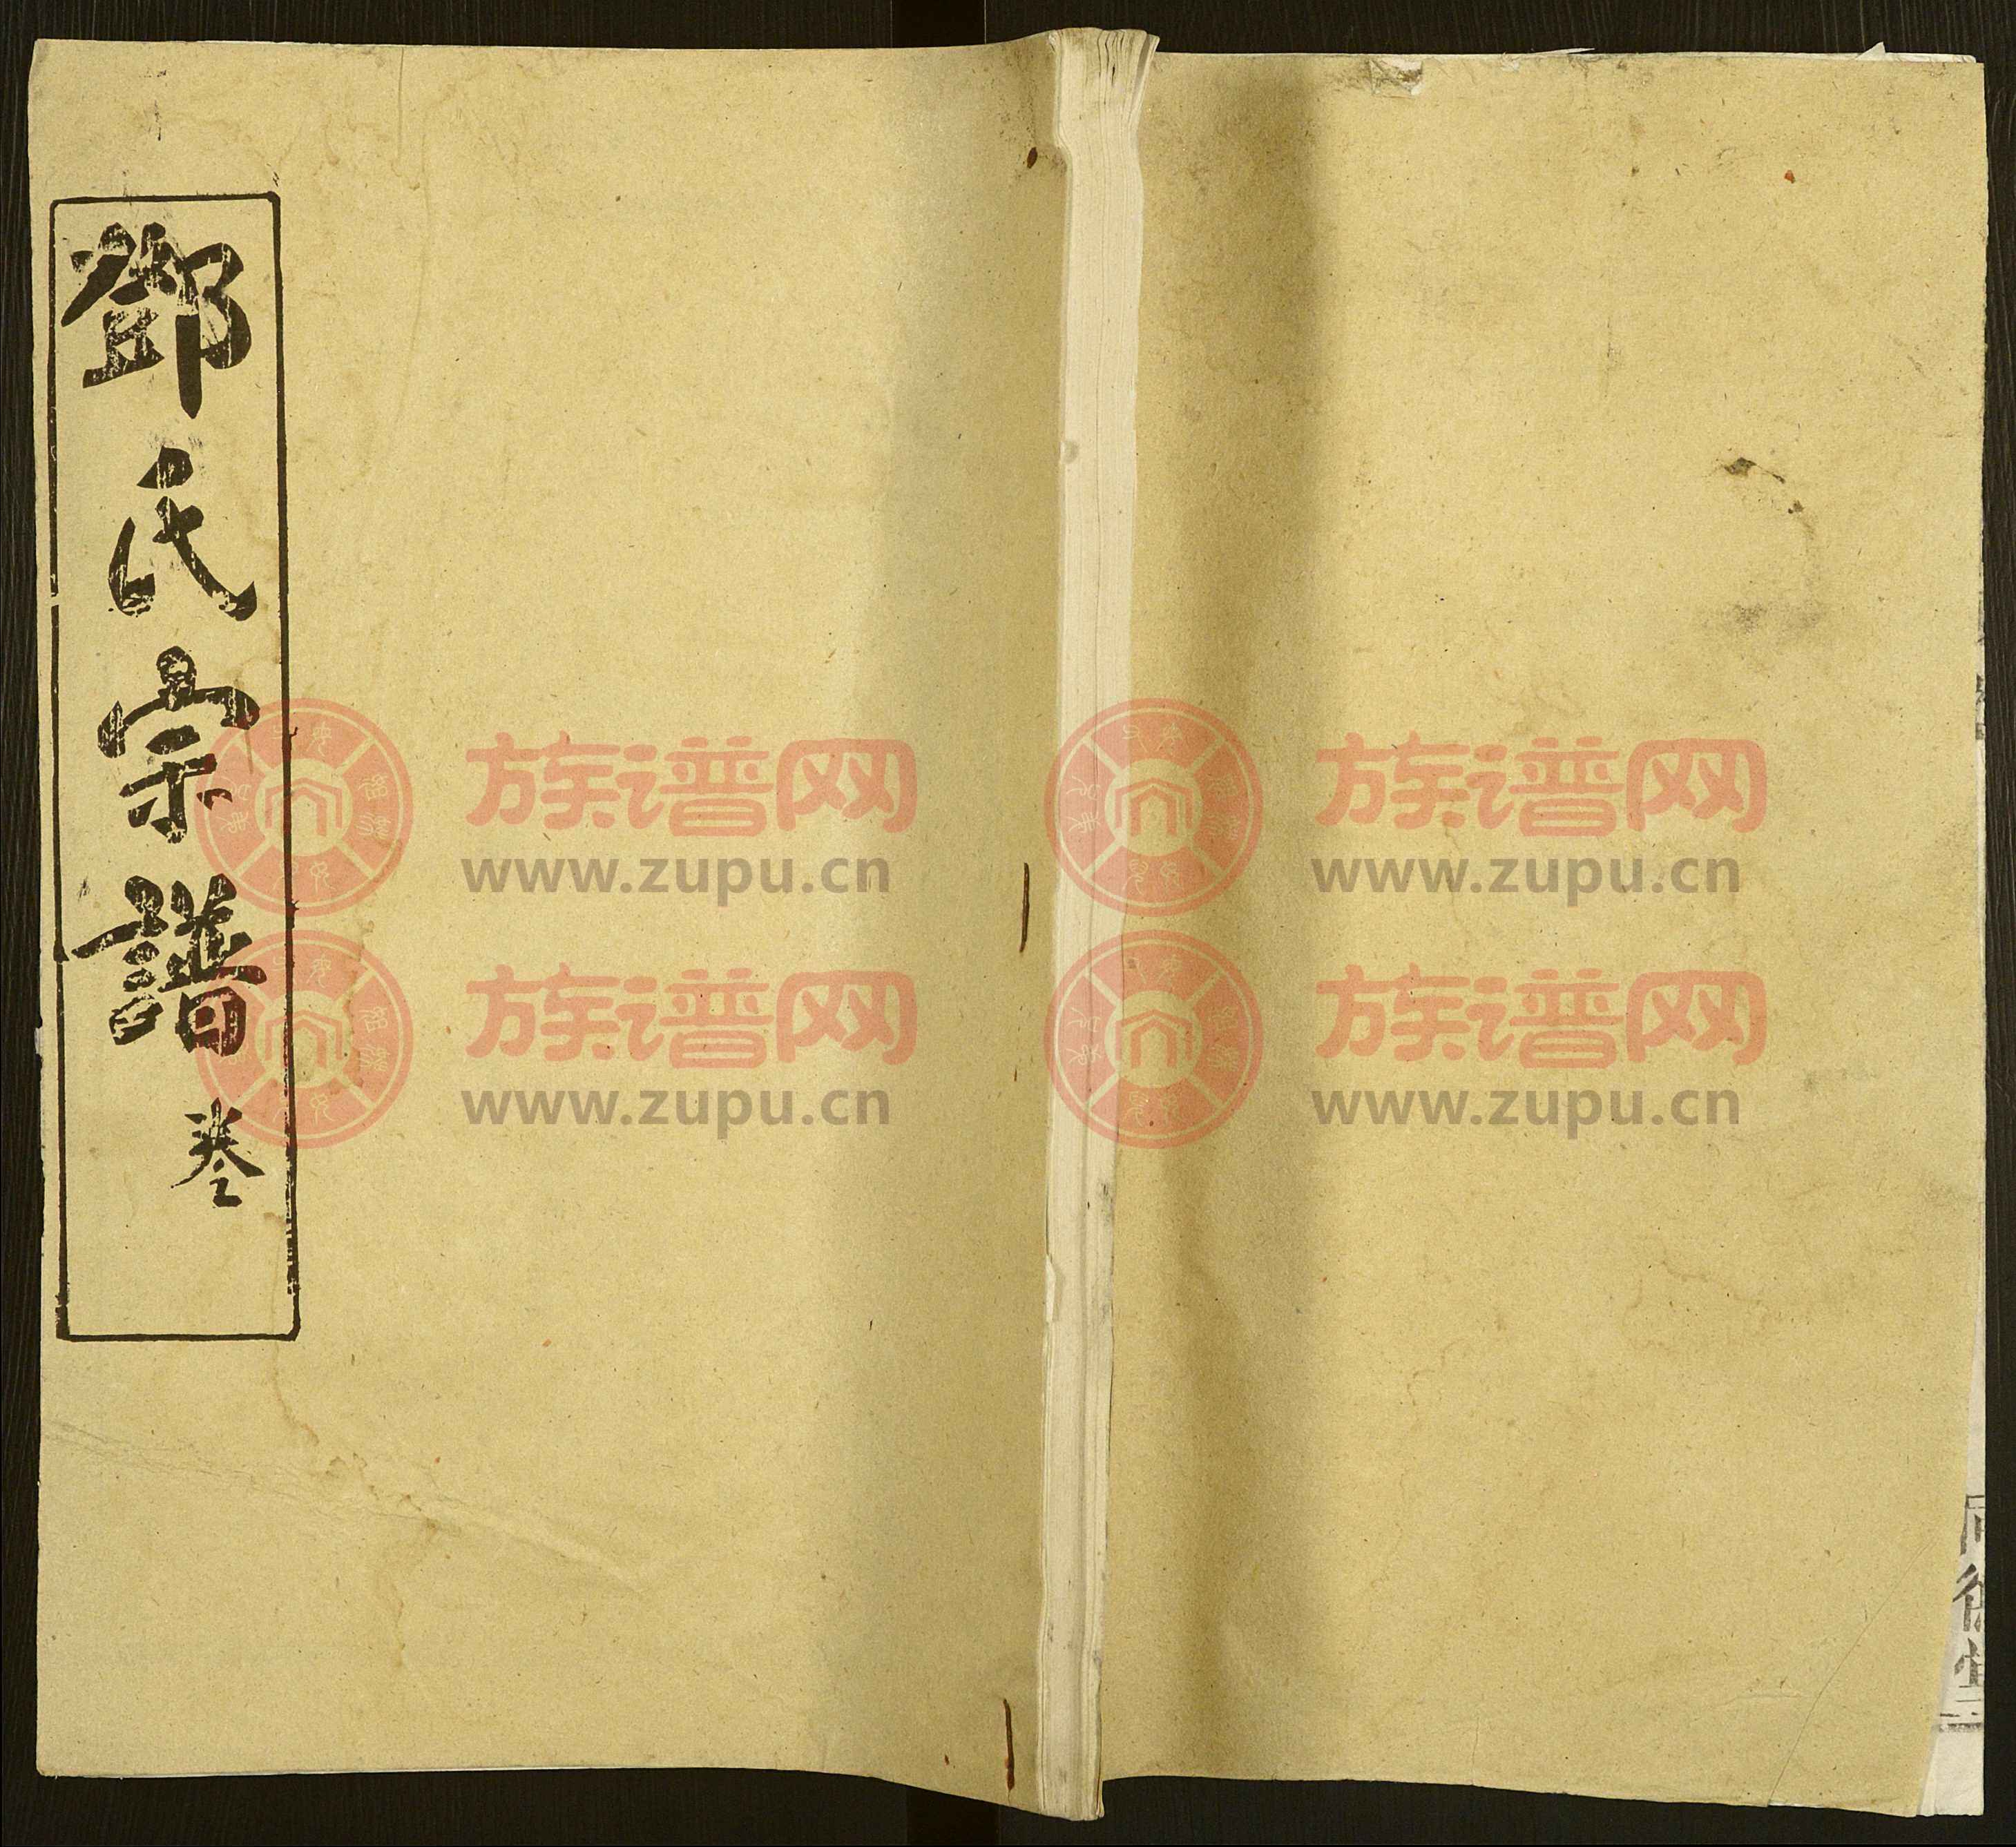 鄧氏宗譜
卷
族谱网
www.zupu.cn
族谱网
www.zupu.cn
族谱网
www.zupu.cn
族谱网
www.zupu.cn